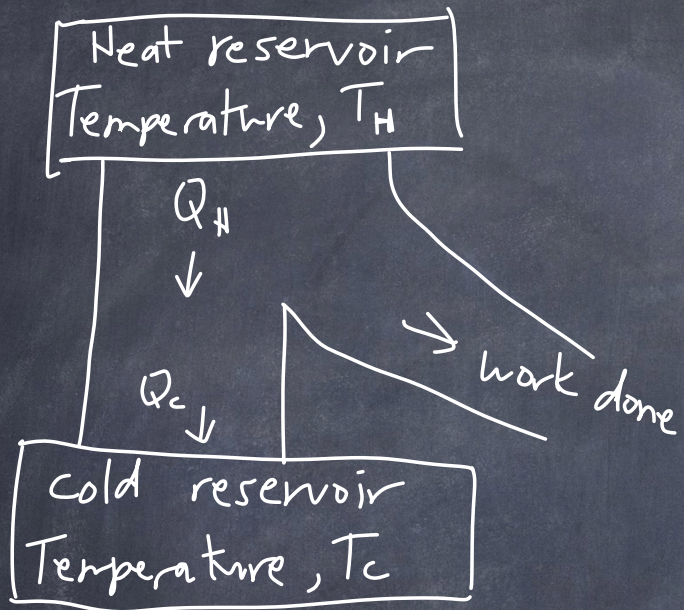 Heat reservoir
Temperature, T_H
Q_H
↓
→ work done
Q_c ↓
Cold reservoir
Temperature, Tc